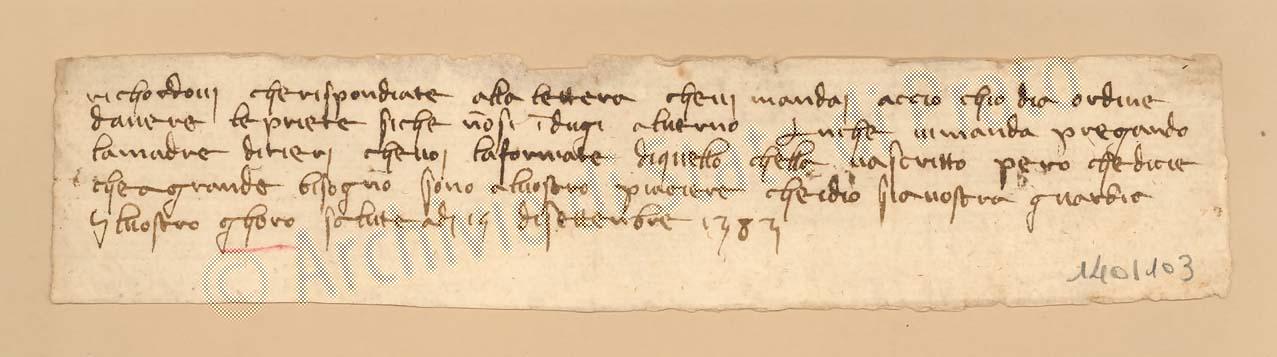 richordovi cherispondiate alla lettera chevi mandai accio chio dia ordine
davere lepriete siche nōsi īdugi alverno Anche vimanda pregando
lamadre ditieri chevoi laformate diquello chella vascritto pero chedicie
cheagrande bisogno sono alvostro piaciere cheidio siavostra guardia
lvostro ghoro salute adi di settenbre 1383
© Archivio di Stato di Prato
1401103